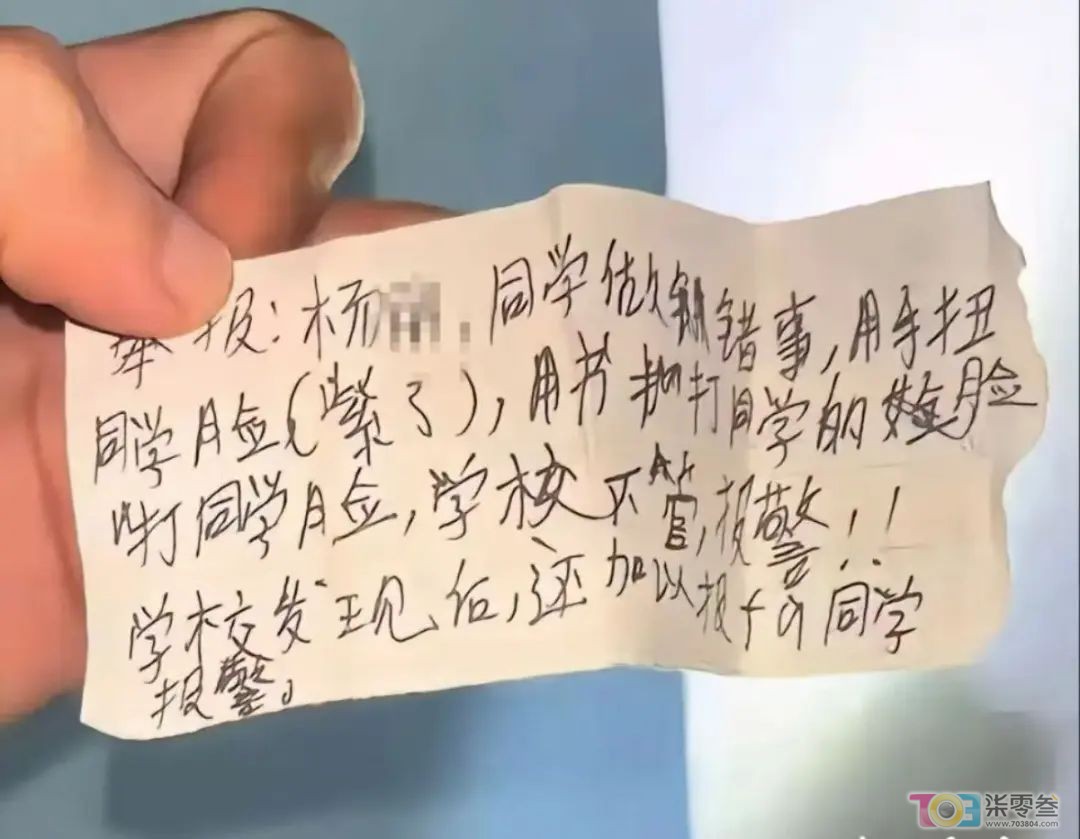 举报:杨 , 同学做错事,用手扭
同学脸(紫了),用书抽打同学的脸
咋打同学脸,学校不管,报警!!
学校发现后,还加以报fa同学
报警。
703 柒零叁
www.703804.com